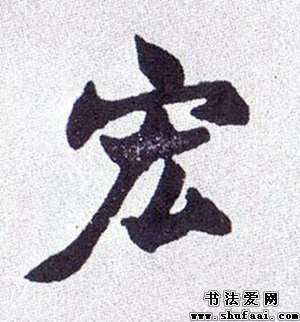 宏
书法爱网
www.shufaai.com